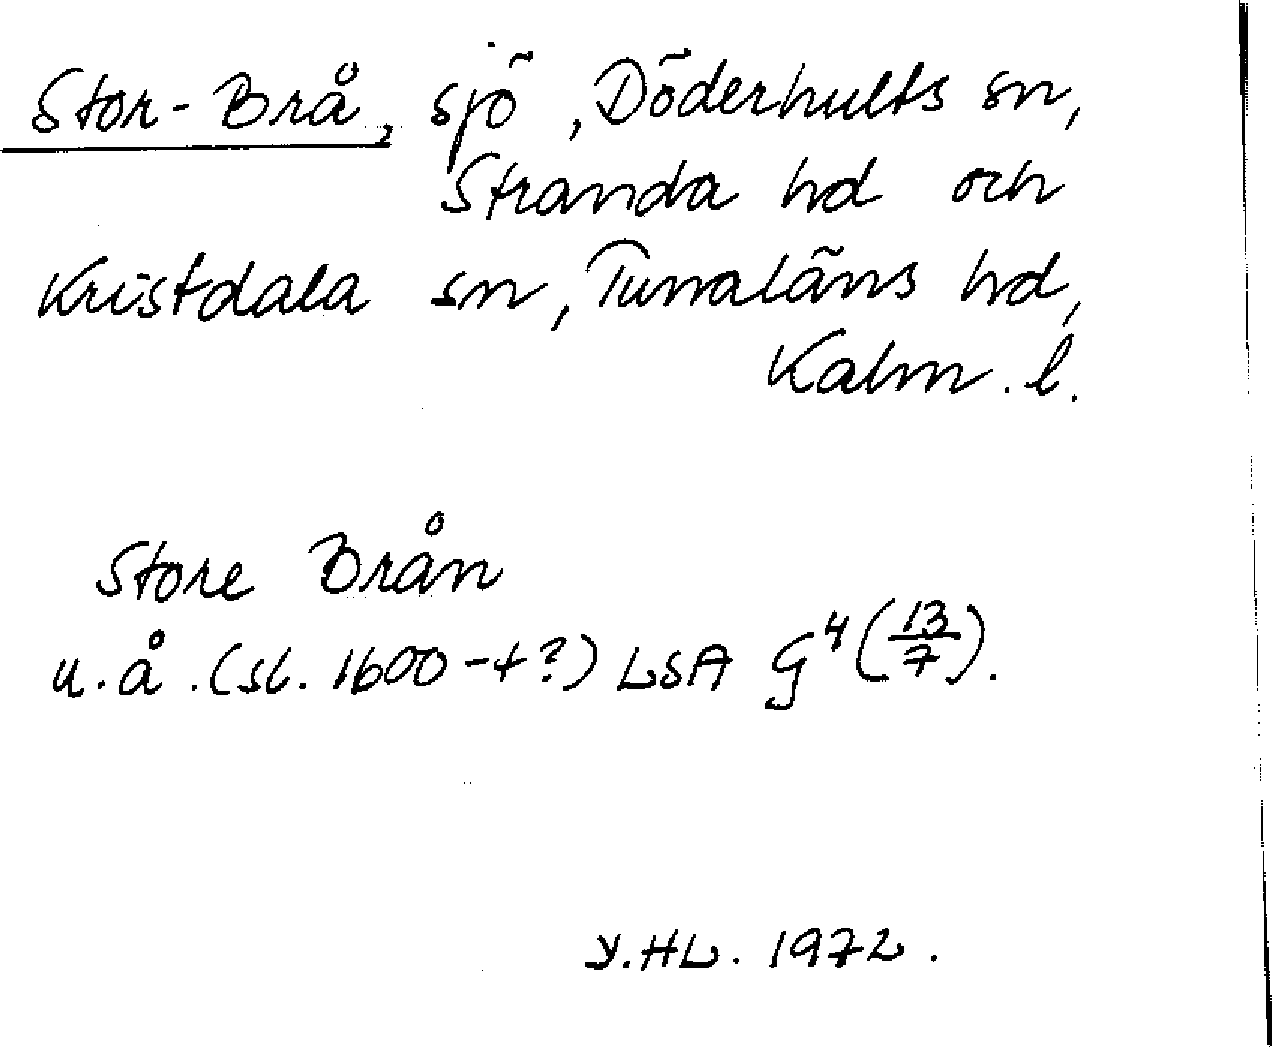 Stor-Brå, sjö, Döderhults sn,
Stranda hd och
Kristdala sn, Tunaläns hd,
Kalm. l.
Store Brån
u.å. (sl. 1600-t?) LSA G⁴ (13/7).
Y.HL. 1972.